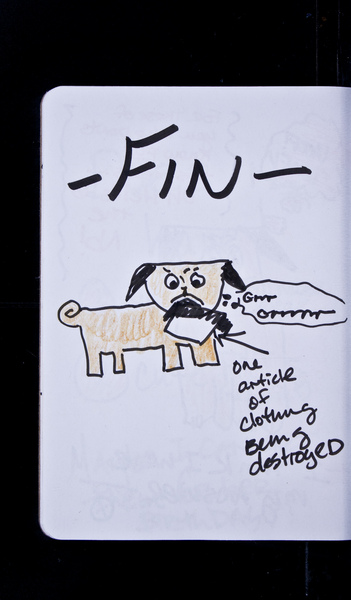 -FIN-
Grrr
Grrrrrrr
one
article
of
clothing
Being
destroyED